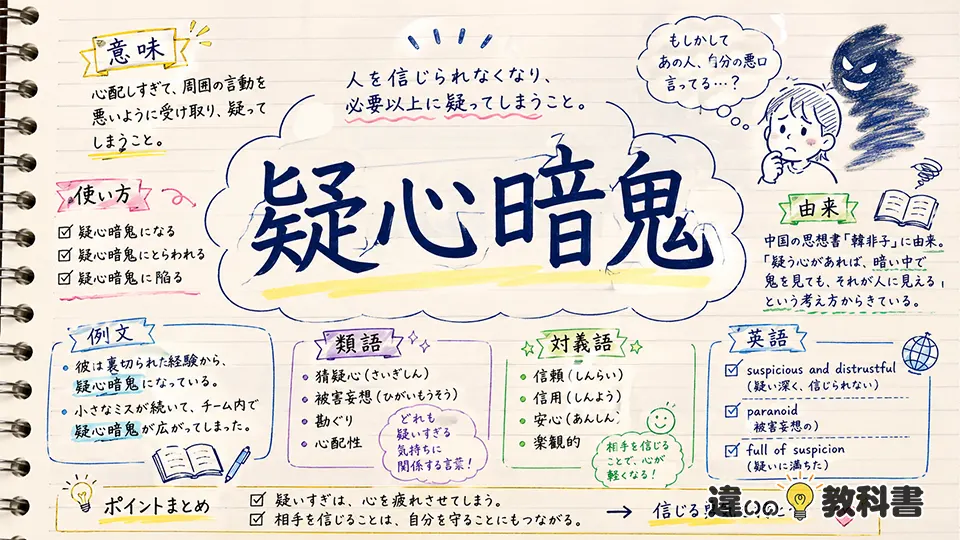 意味
心配しすぎて、周囲の言動を
悪いように受け取り、疑って
しまうこと。
人を信じられなくなり、
必要以上に疑ってしまうこと。
もしかして
あの人、自分の悪口
言ってる…？
疑心暗鬼
使い方
疑心暗鬼になる
疑心暗鬼にとらわれる
疑心暗鬼に陥る
由来
中国の思想書「韓非子」に由来。
「疑う心があれば、暗い中で
鬼を見ても、それが人に見える」
という考え方からきている。
例文
・彼は裏切られた経験から、
疑心暗鬼になっている。
・小さなミスが続いて、チーム内で
疑心暗鬼が広がってしまった。
類語
・猜疑心（さいぎしん）
・被害妄想（ひがいもうそう）
・勘ぐり
・心配性
どれも
疑いすぎる
気持ちに
関係する言葉！
対義語
・信頼（しんらい）
・信用（しんよう）
・安心（あんしん）
・楽観的
相手を信じる
ことで、心が
軽くなる！
英語
suspicious and distrustful
（疑い深く、信じられない）
paranoid
被害妄想の）
full of suspicion
（疑いに満ちた）
ポイントまとめ
疑いすぎは、心を疲れさせてしまう。
相手を信じることは、自分を守ることにもつながる。
→ 信じる
違いの教科書